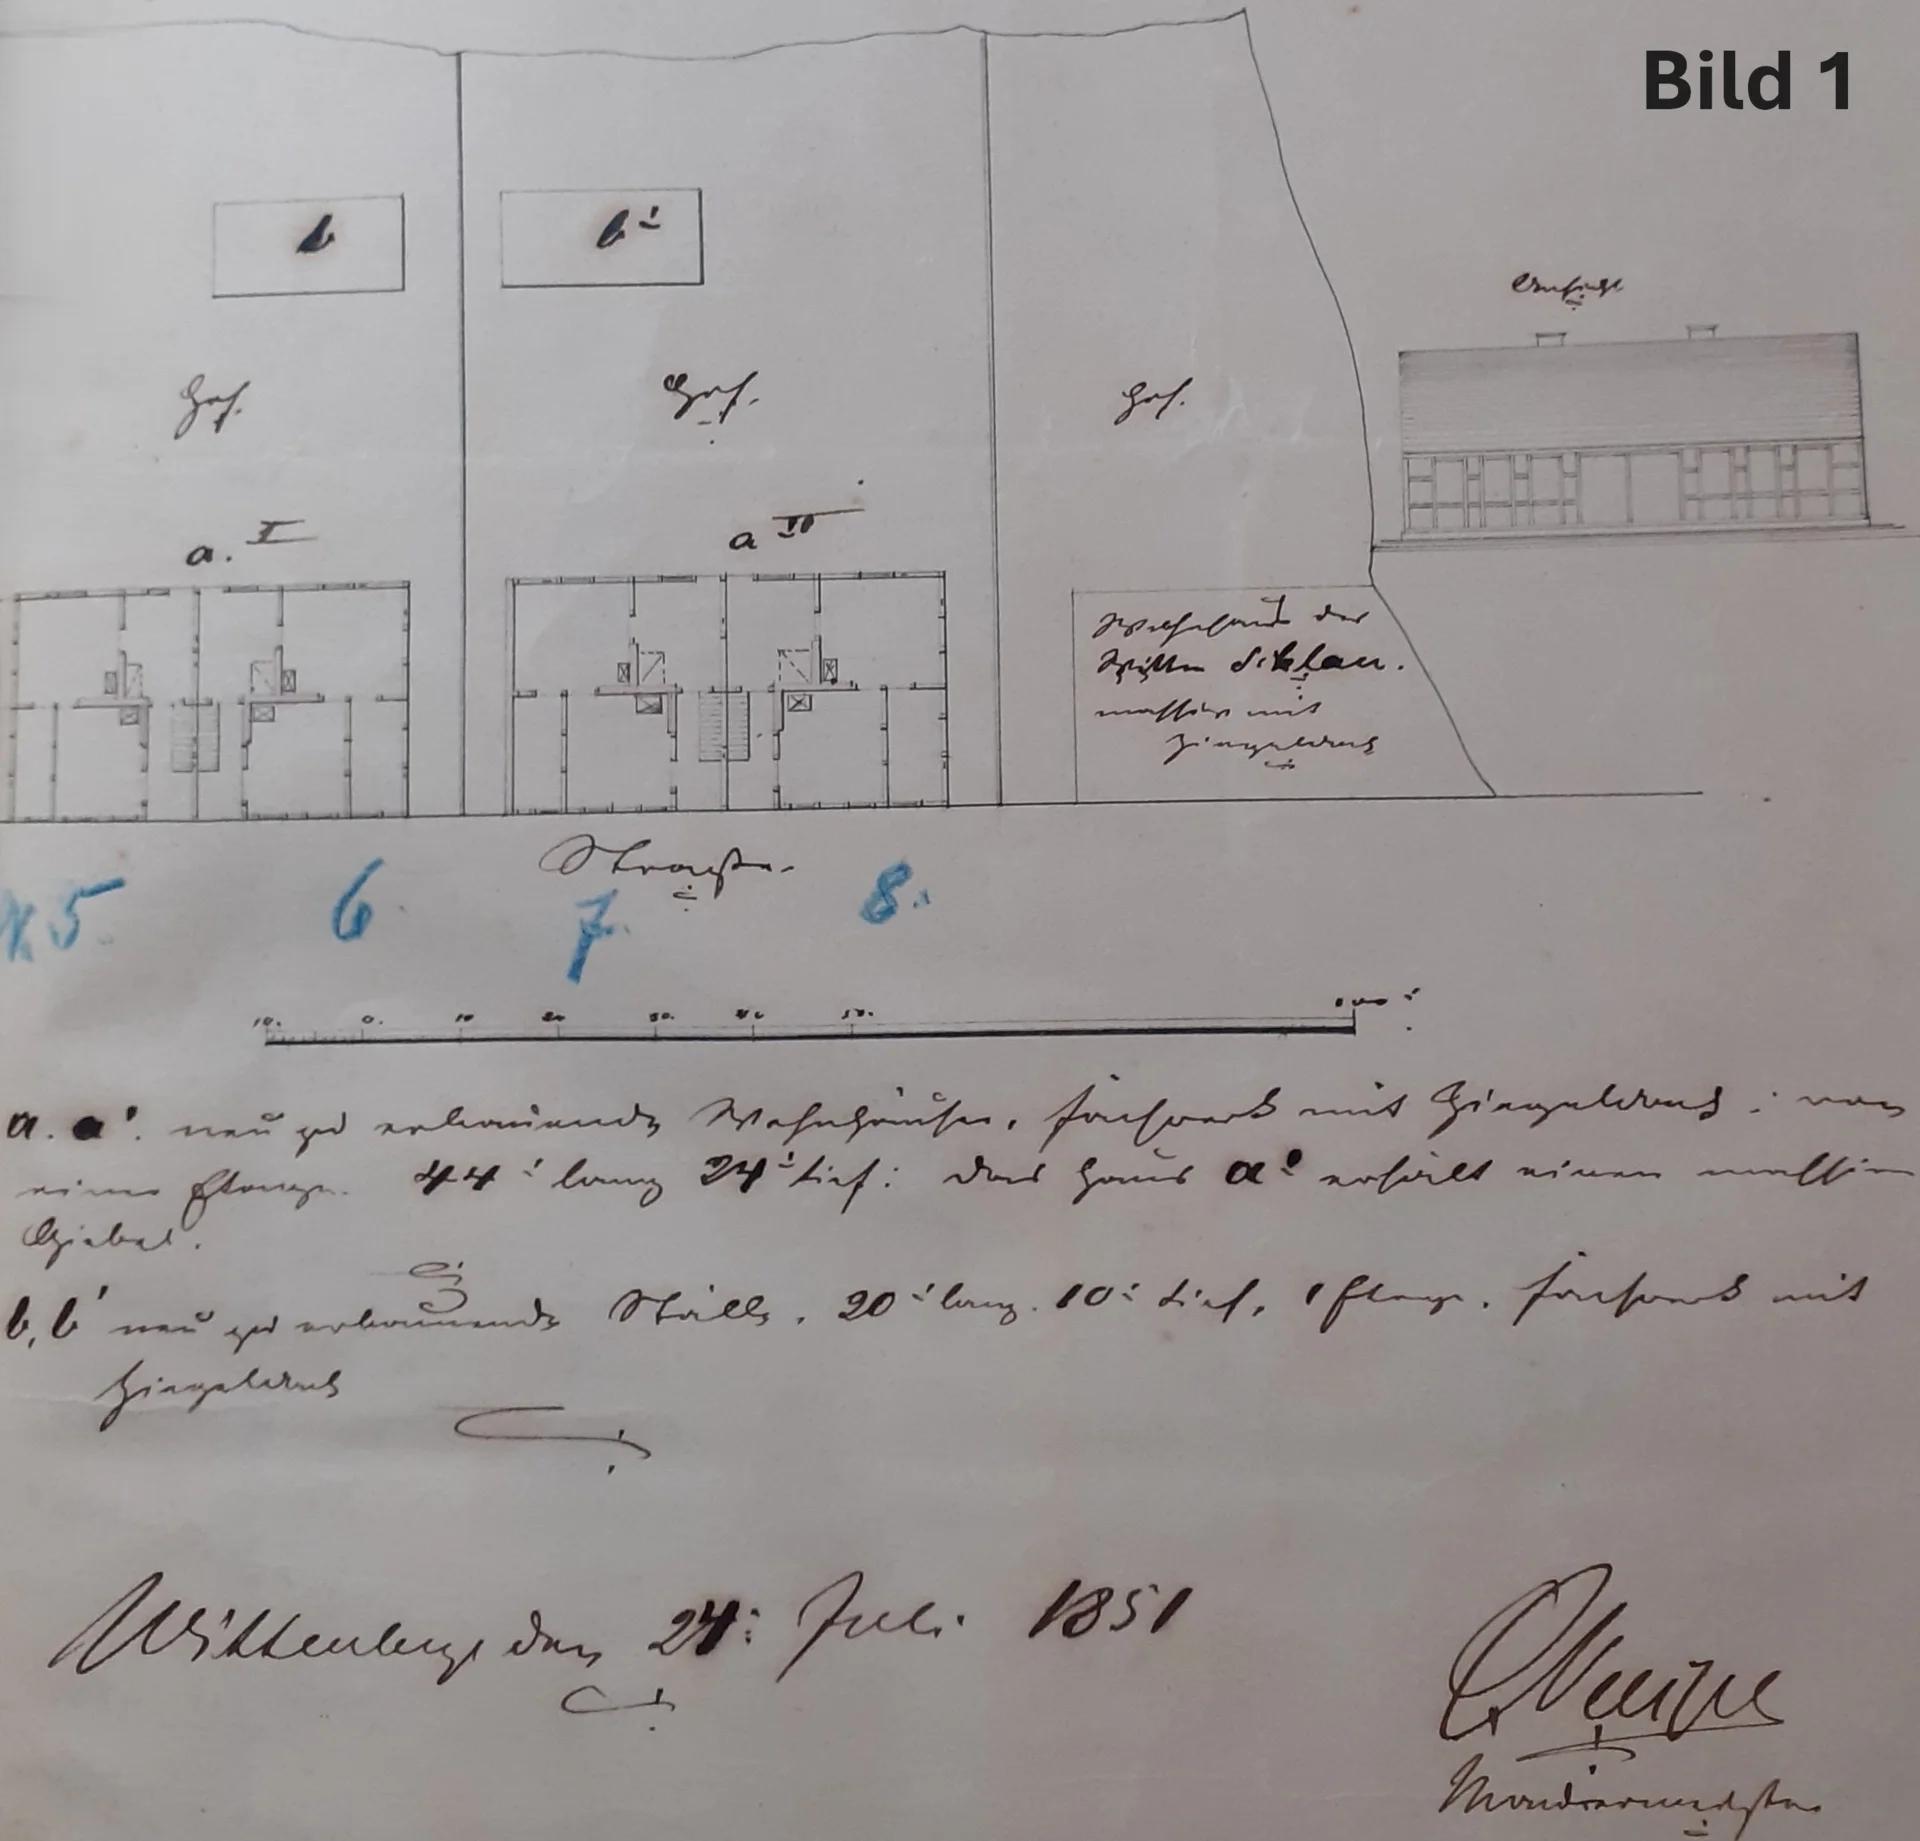 Bild 1
b
b'
Ansicht
Hof.
Hof.
Hof.
a. I
a II
Wohnhaus der
Wittwe
massiv mit
Ziegeldach
Straße.
№ 5.
6.
7.
8.
10. 0. 10 20 30. 40 50. 100'
a. a'. neu zu erbauende Wohnhäuser, Fachwerk mit Ziegeldach; von
einer Etage. 44' lang 24' tief: das Haus a' erhält einen massiven
Giebel.
b, b' neu zu erbauende Ställe, 20' lang. 10' tief, 1 Etage, Fachwerk mit
Ziegeldach
Wittenberge den 24: Juli 1851
Maurermeister